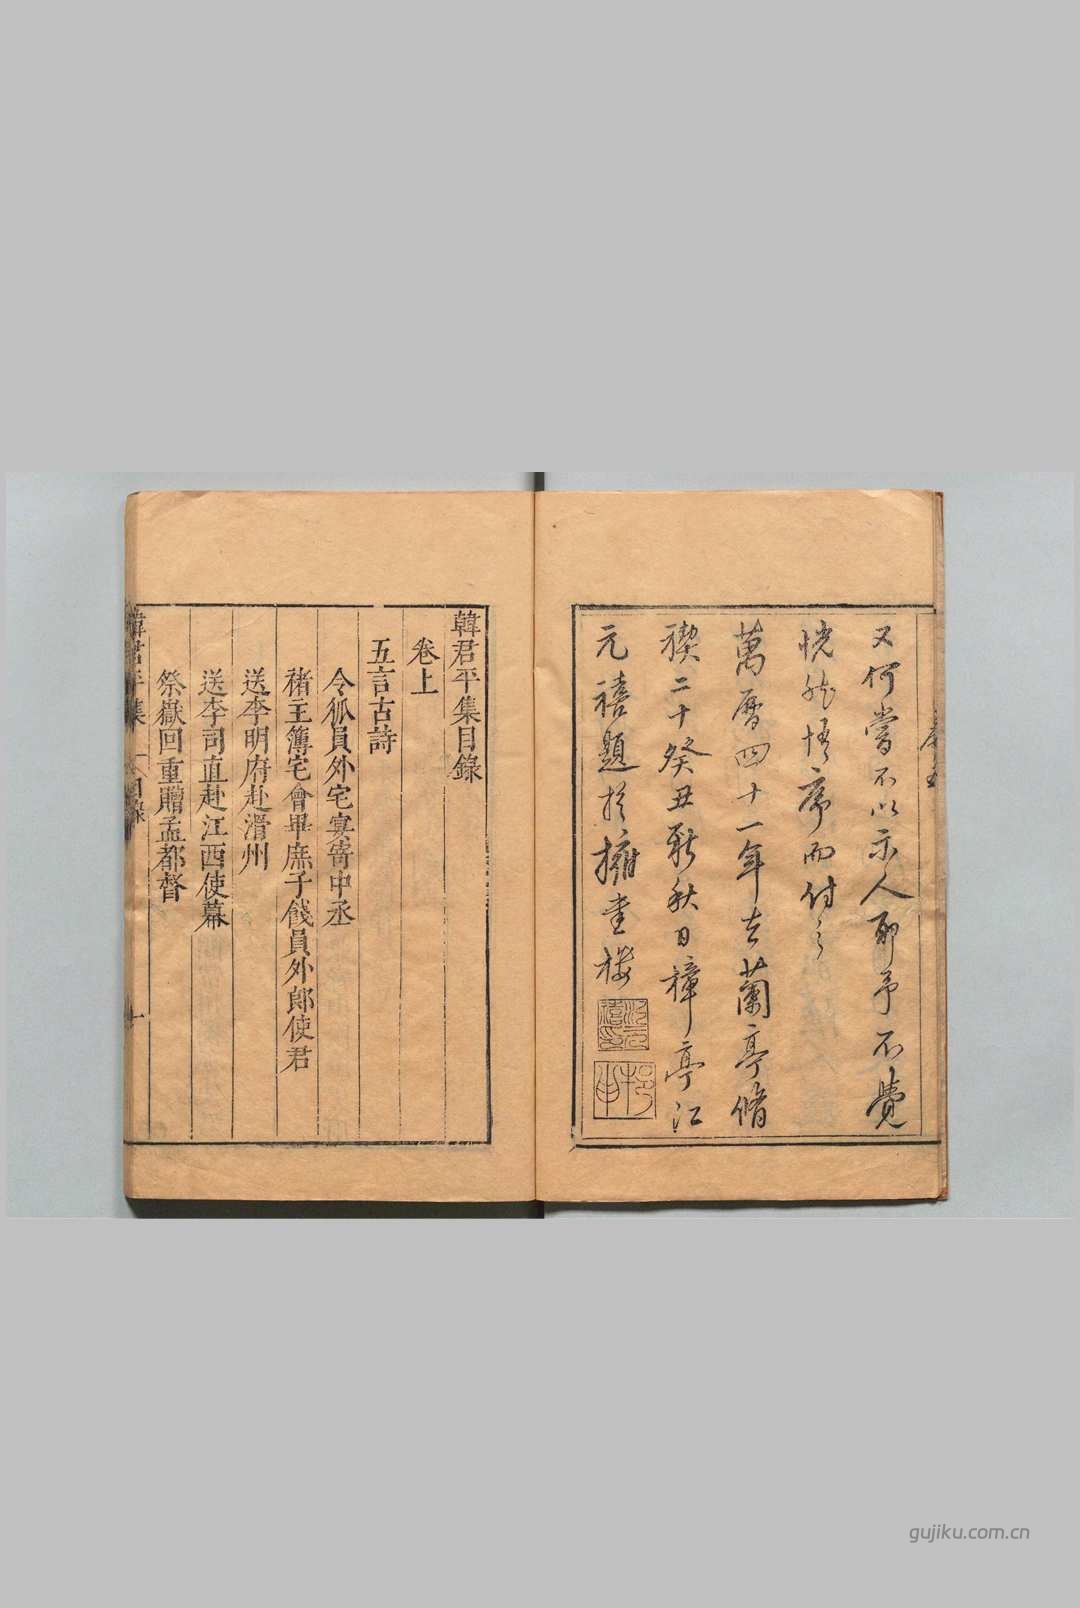 又何嘗不以示人耶予不覺
恍然悟序而付之
萬曆四十一年去蘭亭脩
禊二十癸丑新秋日樟亭江
元禧題於擁書樓
韓君平集目錄
卷上
五言古詩
令狐員外宅宴寄中丞
褚主簿宅會畢庶子餞員外郎使君
送李明府赴滑州
送李司直赴江西使幕
祭嶽回重贈孟都督
韓君平集 目錄 一
gujiku.com.cn